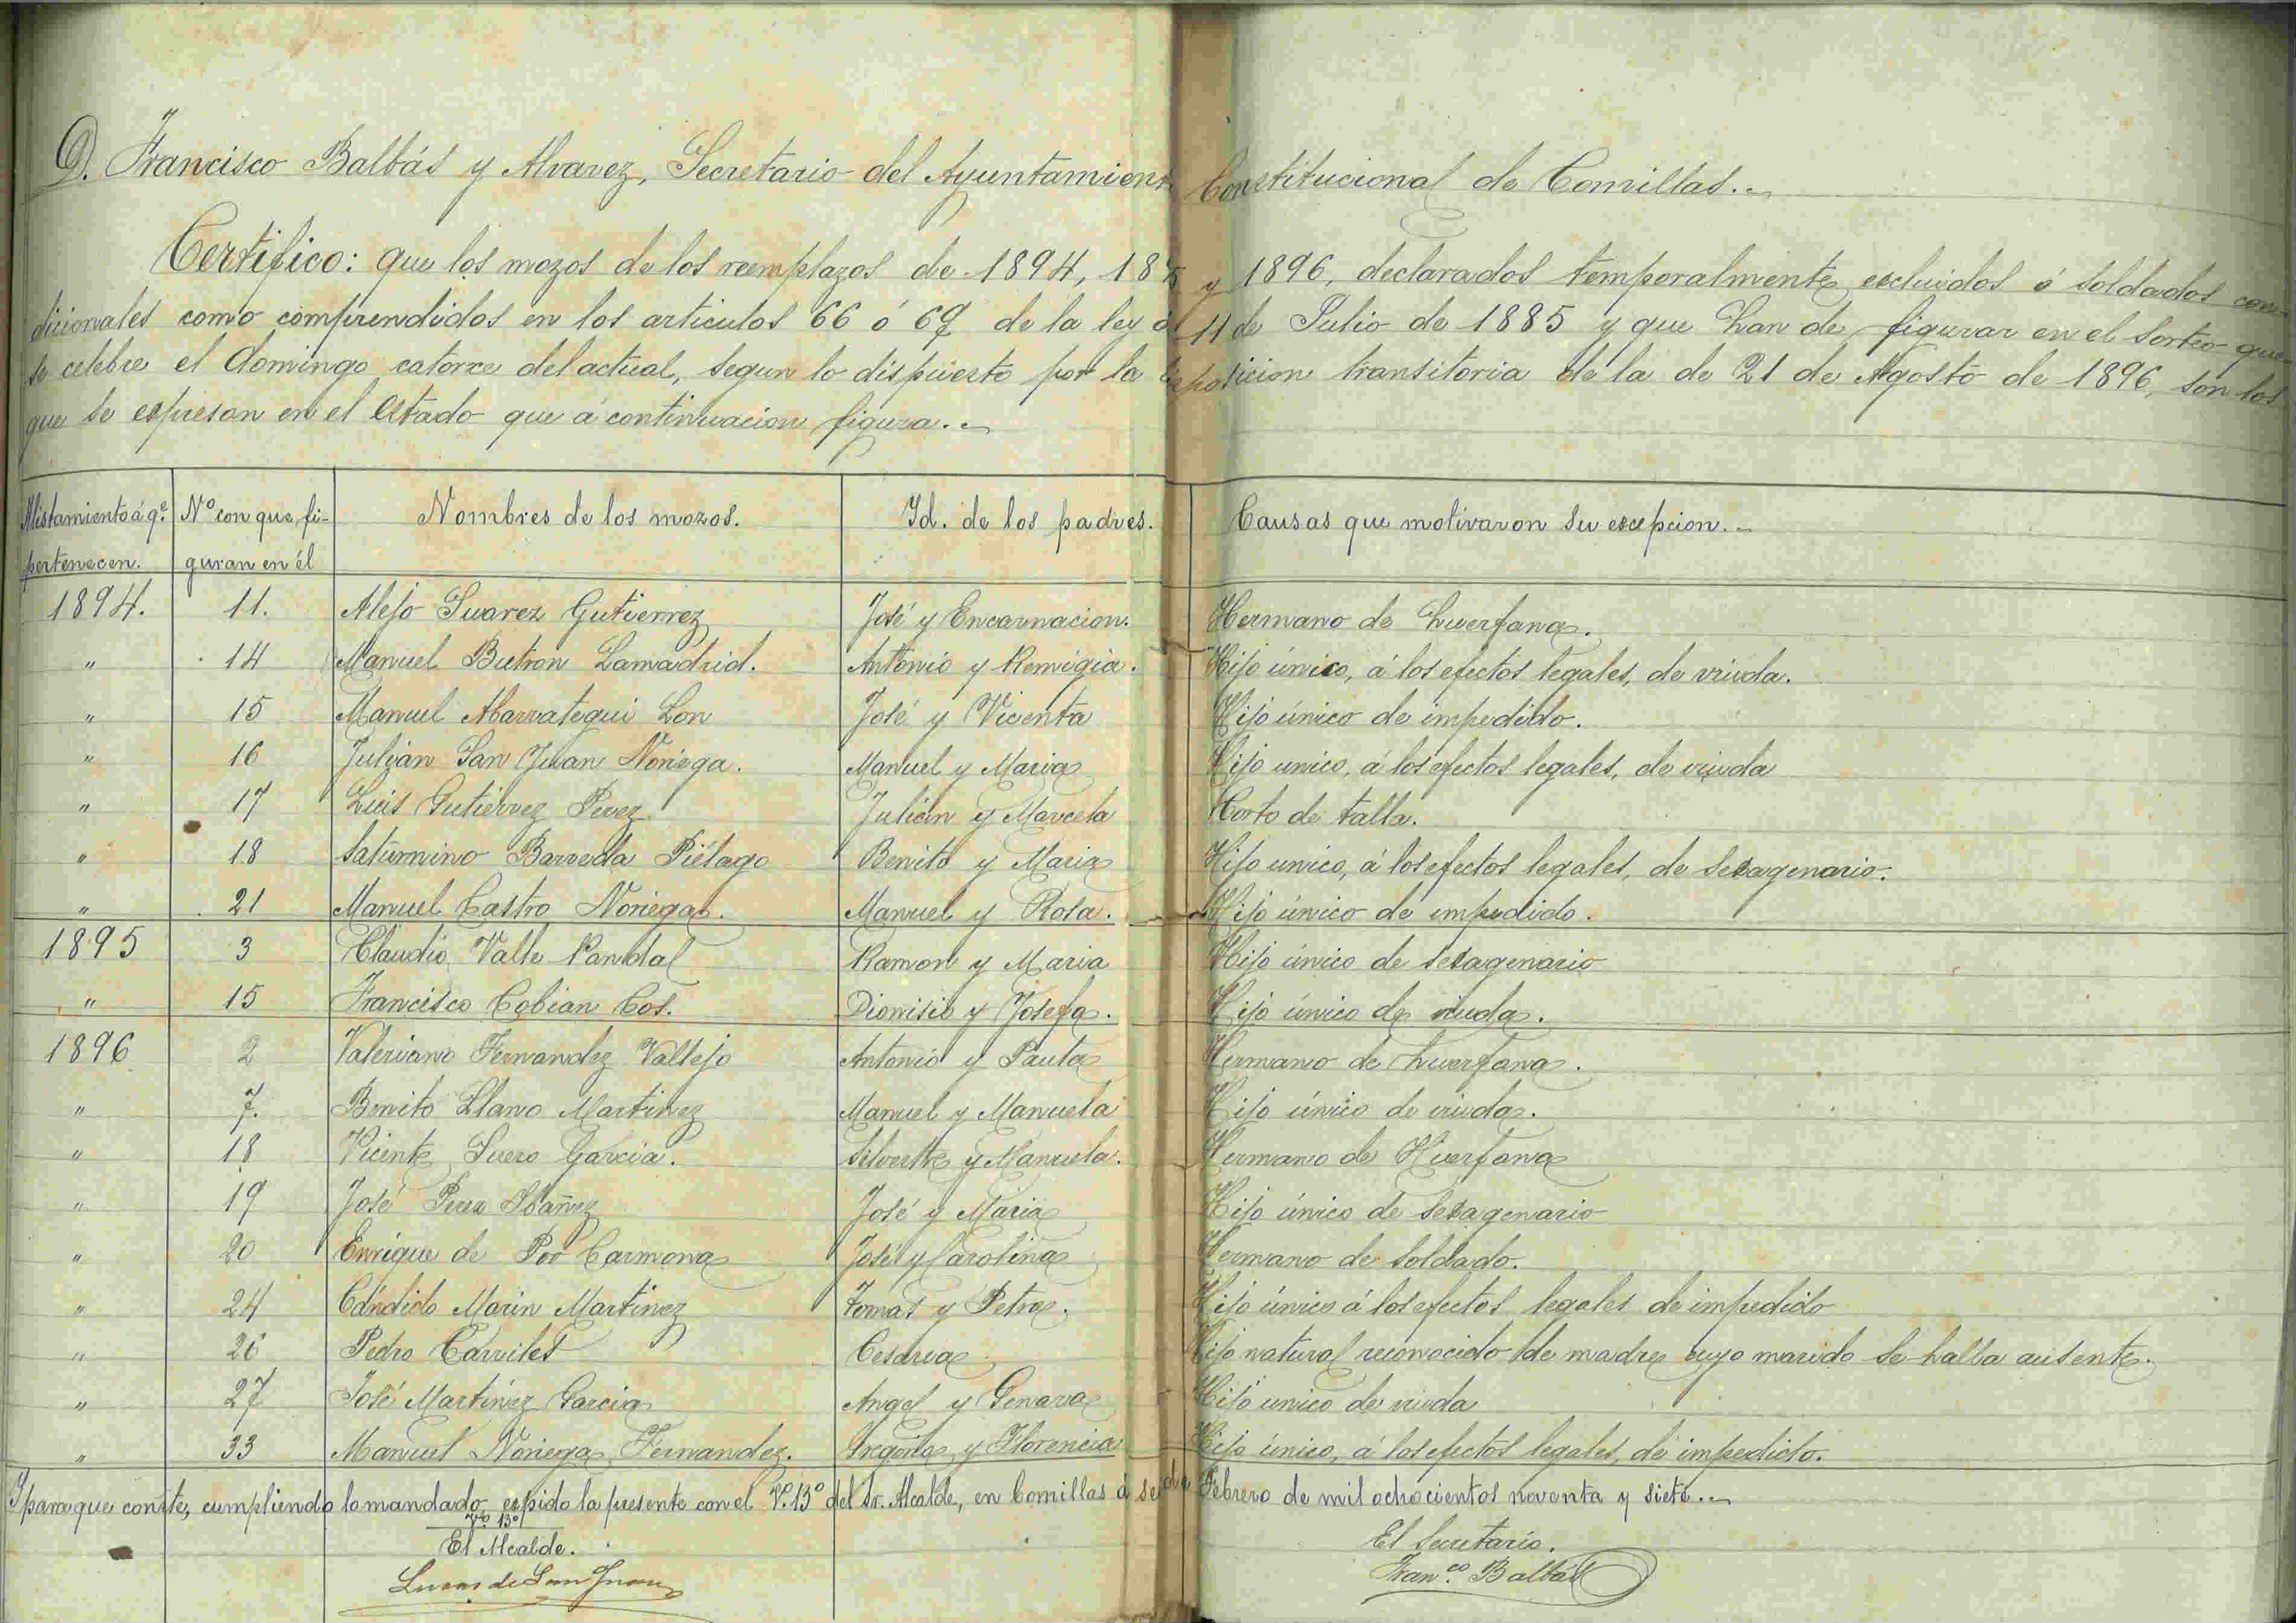 D. Francisco Balbás y Alvarez, Secretario del Ayuntamient Constitucional de Comillas.
Certifico: que los mozos de los reemplazos de 1894, 1895 y 1896, declarados temporalmente escluidos ó soldados con-
dicionales como comprendidos en los articulos 66 ó 69 de la ley d 11 de Julio de 1885 y que han de figurar en el sorteo que
se celebre el domingo catorce del actual, segun lo dispuesto por la disposicion transitoria de la de 21 de Agosto de 1896, son los
que se espresan en el estado que á continuacion figura.
Alistamiento á qe. pertenecen. Nº con que fi- guran en él Nombres de los mozos. Id. de los padres. Causas que motivaron su escepcion.
1894. 11. Alejo Suarez Gutierrez José y Encarnacion. Hermano de huerfana.
" 14 Manuel Butron Lamadrid. Antonio y Remigia. Hijo único, á los efectos legales, de viuda.
" 15 Manuel Abarrategui Lon José y Vicenta Hijo único de impedido.
" 16 Julian San Juan Noriega. Manuel y Maria Hijo unico, á los efectos legales, de viuda
" 17 Luis Gutierrez Perez Julián y Marcela Corto de talla.
" 18 Saturnino Barreda Piélago Benito y Maria Hijo unico, á los efectos legales, de sexagenario.
" 21 Manuel Castro Noriega. Manuel y Rosa. Hijo único de impedido.
1895 3 Claudio Valle Randal Ramon y Maria Hijo único de sexagenario
" 15 Francisco Cobian Cos. Dionisio y Josefa. Hijo único de viuda.
1896 2 Valeriano Fernandez Vallejo Antonio y Paula Hermano de huerfana.
" 7. Benito Llano Martinez Manuel y Manuela Hijo único de viuda.
" 18 Vicente Suero Garcia. Silvestre y Manuela. Hermano de Huerfana
" 19 José Perez Ibañez José y Maria Hijo único de sexagenario
" 20 Enrique de Poo Carmona José y Carolina Hermano de soldado.
" 24 Cándido Marin Martinez Tomas y Petra. Hijo único á los efectos legales de impedido
" 26 Pedro Carriles Cesarea Hijo natural reconocido de madre cuyo marido se halla ausente.
" 27 José Martinez Garcia Angel y Genara Hijo unico de viuda
" 33 Manuel Noriega Fernandez. Gregorio y Florencia Hijo único, á los efectos legales, de impedido.
Y para que conste, cumpliendo lo mandado, espido la presente con el Vº. Bº del Sr. Alcalde, en Comillas á seis de Febrero de mil ochocientos noventa y siete.
Vº Bº
El Alcalde. El Secretario.
Lucas de San Juan Fran.co Balbás